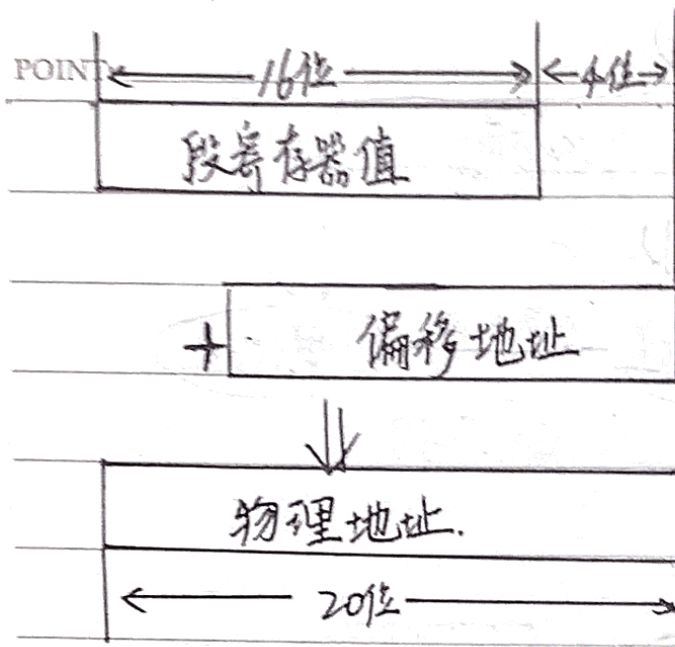 POINT
16位 4位
段寄存器值
+ 偏移地址
物理地址.
20位